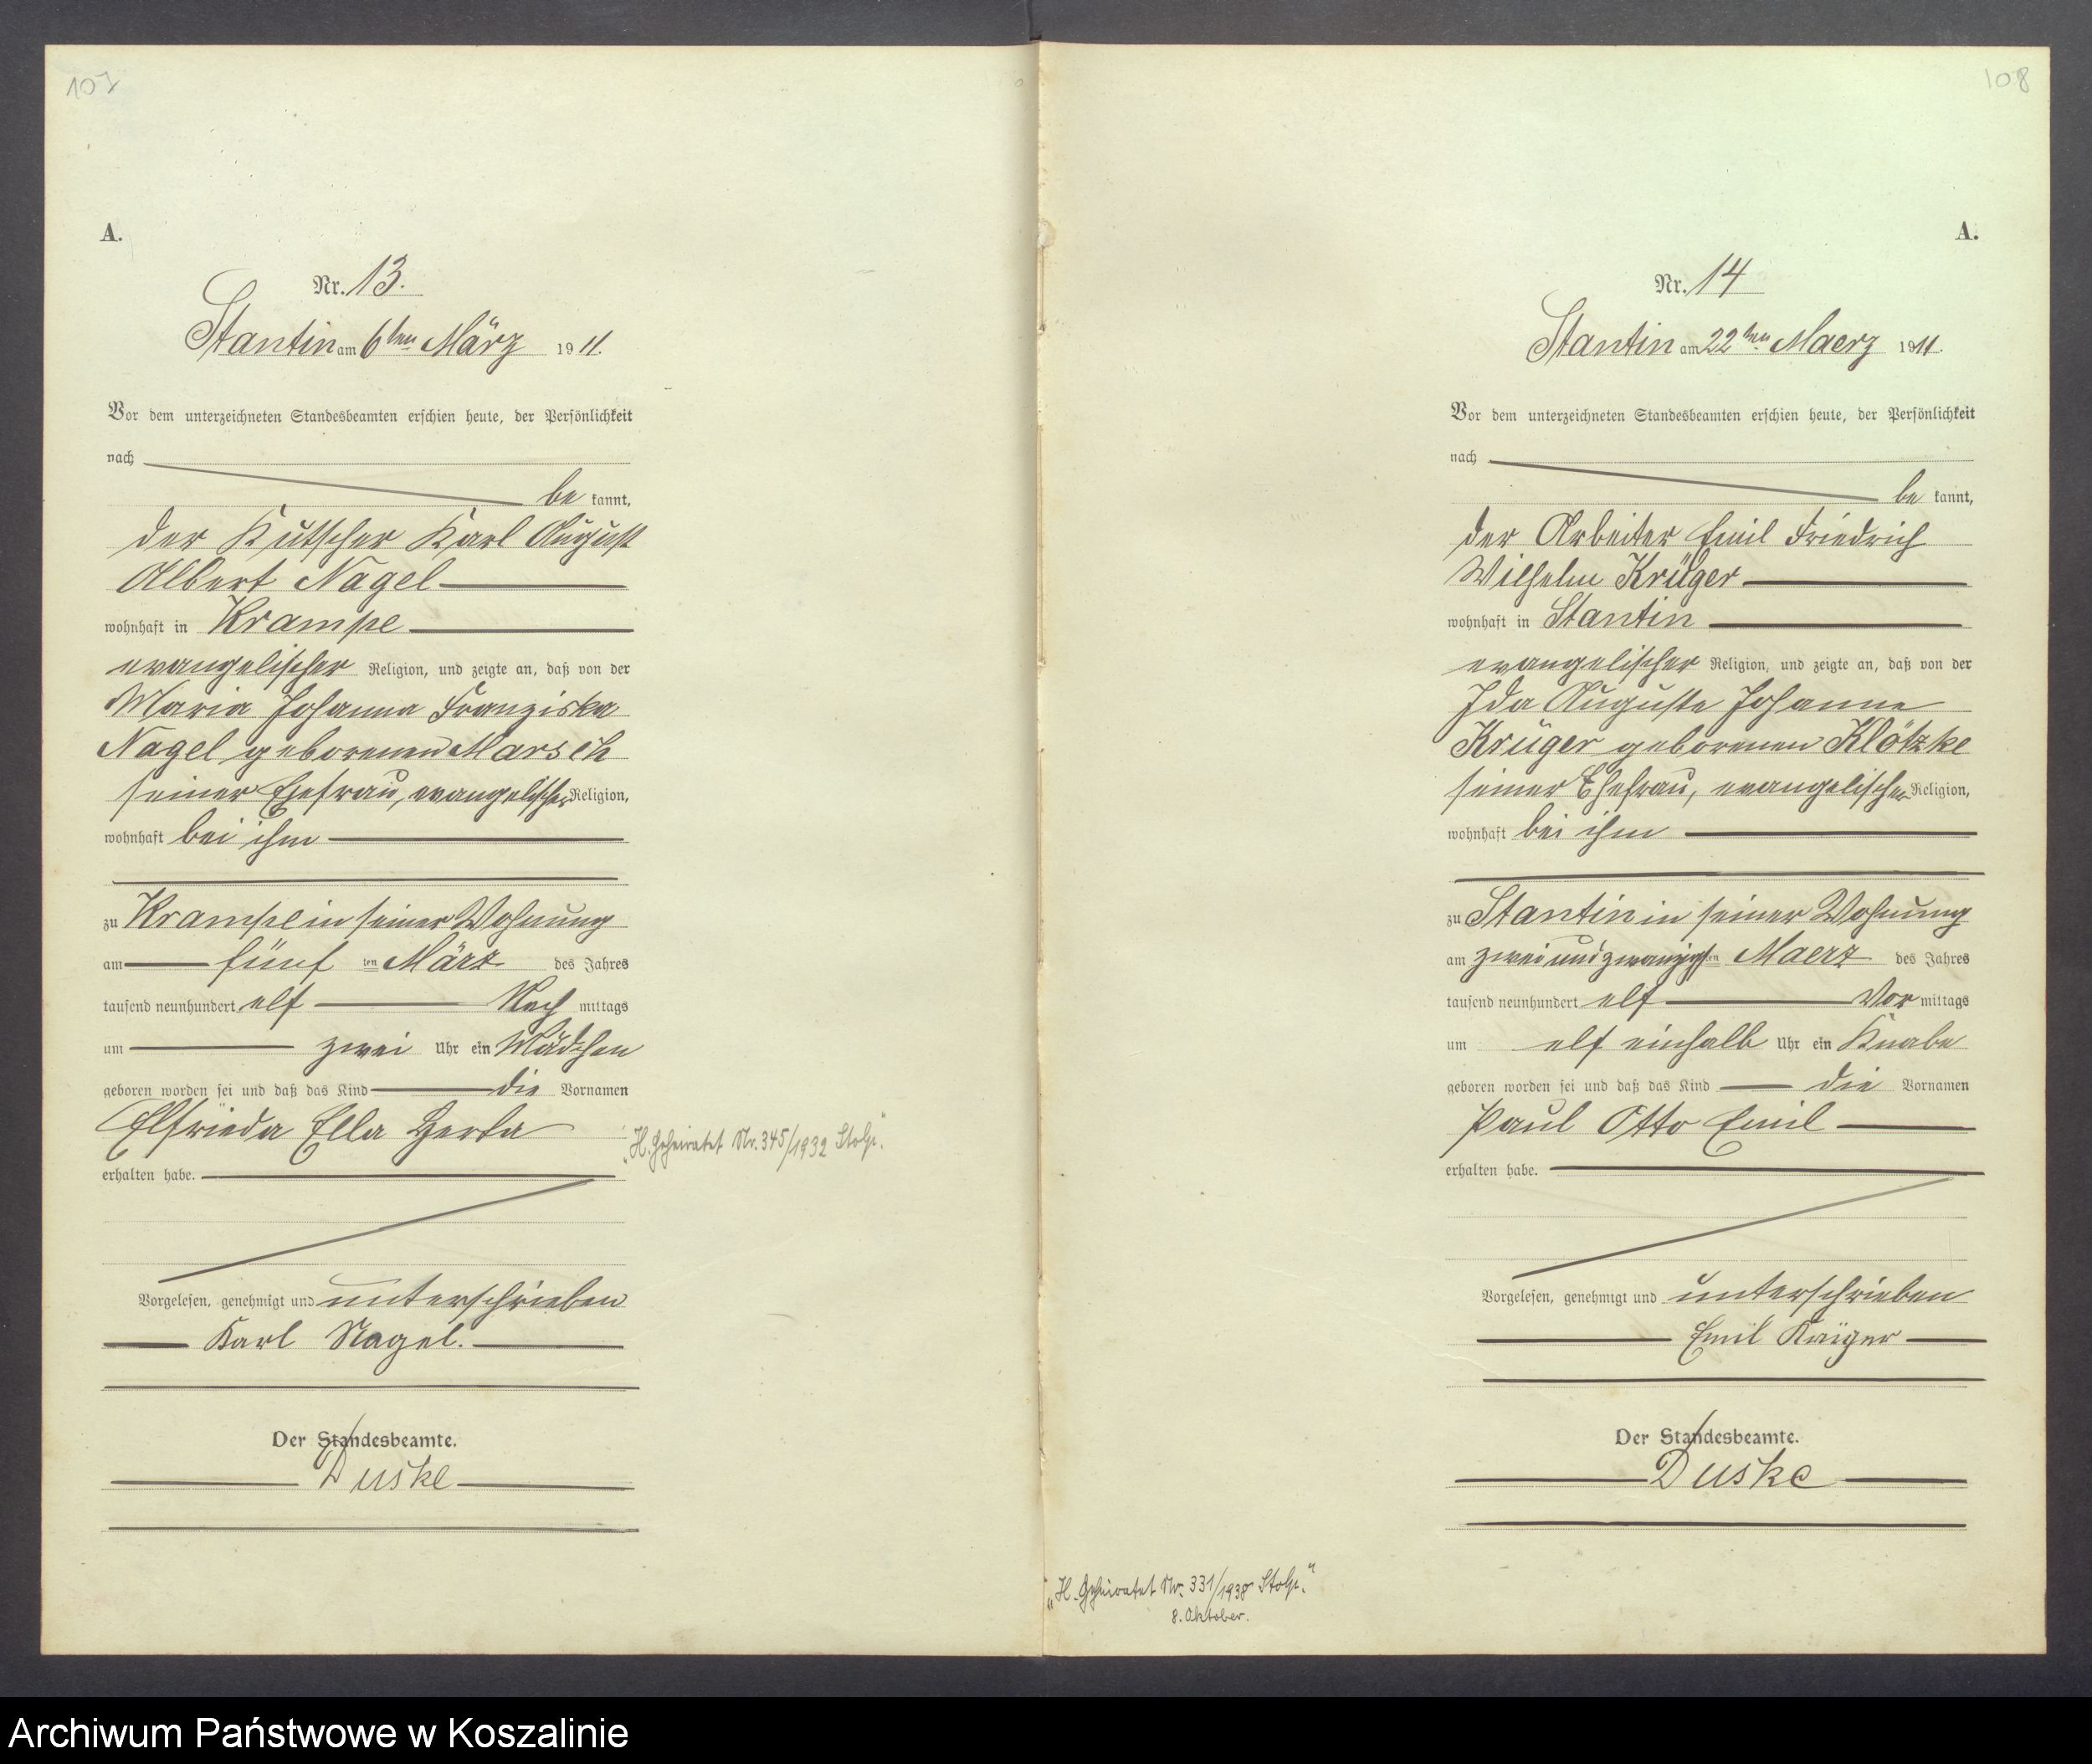 107
A.
Nr. 13.
Stantin am 6ten März 1911.
Vor dem unterzeichneten Standesbeamten erschien heute, der Persönlichkeit
nach
be kannt,
der Kutscher Karl August
Albert Nagel
wohnhaft in Krampe
evangelischer Religion, und zeigte an, daß von der
Maria Johanna Franziska
Nagel geborenen Marsch
seiner Ehefrau, evangelischer Religion,
wohnhaft bei ihm
zu Krampe in seiner Wohnung
am fünf ten März des Jahres
tausend neunhundert elf Nach mittags
um zwei Uhr ein Mädchen
geboren worden sei und daß das Kind die Vornamen
Elfrieda Ella Herta
„H. Geheiratet Nr. 345/1932 Stolp."
erhalten habe.
Vorgelesen, genehmigt und unterschrieben
Karl Nagel.
Der Standesbeamte.
Duske
108
A.
Nr. 14
Stantin am 22ten Maerz 1911.
Vor dem unterzeichneten Standesbeamten erschien heute, der Persönlichkeit
nach
be kannt,
der Arbeiter Emil Friedrich
Wilhelm Krüger
wohnhaft in Stantin
evangelischer Religion, und zeigte an, daß von der
Ida Auguste Johanne
Krüger geborenen Klötzke
seiner Ehefrau, evangelischer Religion,
wohnhaft bei ihm
zu Stantin in seiner Wohnung
am zweiundzwanzigsten Maerz des Jahres
tausend neunhundert elf Vor mittags
um elf einhalb Uhr ein Knabe
geboren worden sei und daß das Kind die Vornamen
Paul Otto Emil
erhalten habe.
Vorgelesen, genehmigt und unterschrieben
Emil Krüger
Der Standesbeamte.
Duske
„H. Geheiratet Nr. 331/1938 Stolp."
8. Oktober.
Archiwum Państwowe w Koszalinie